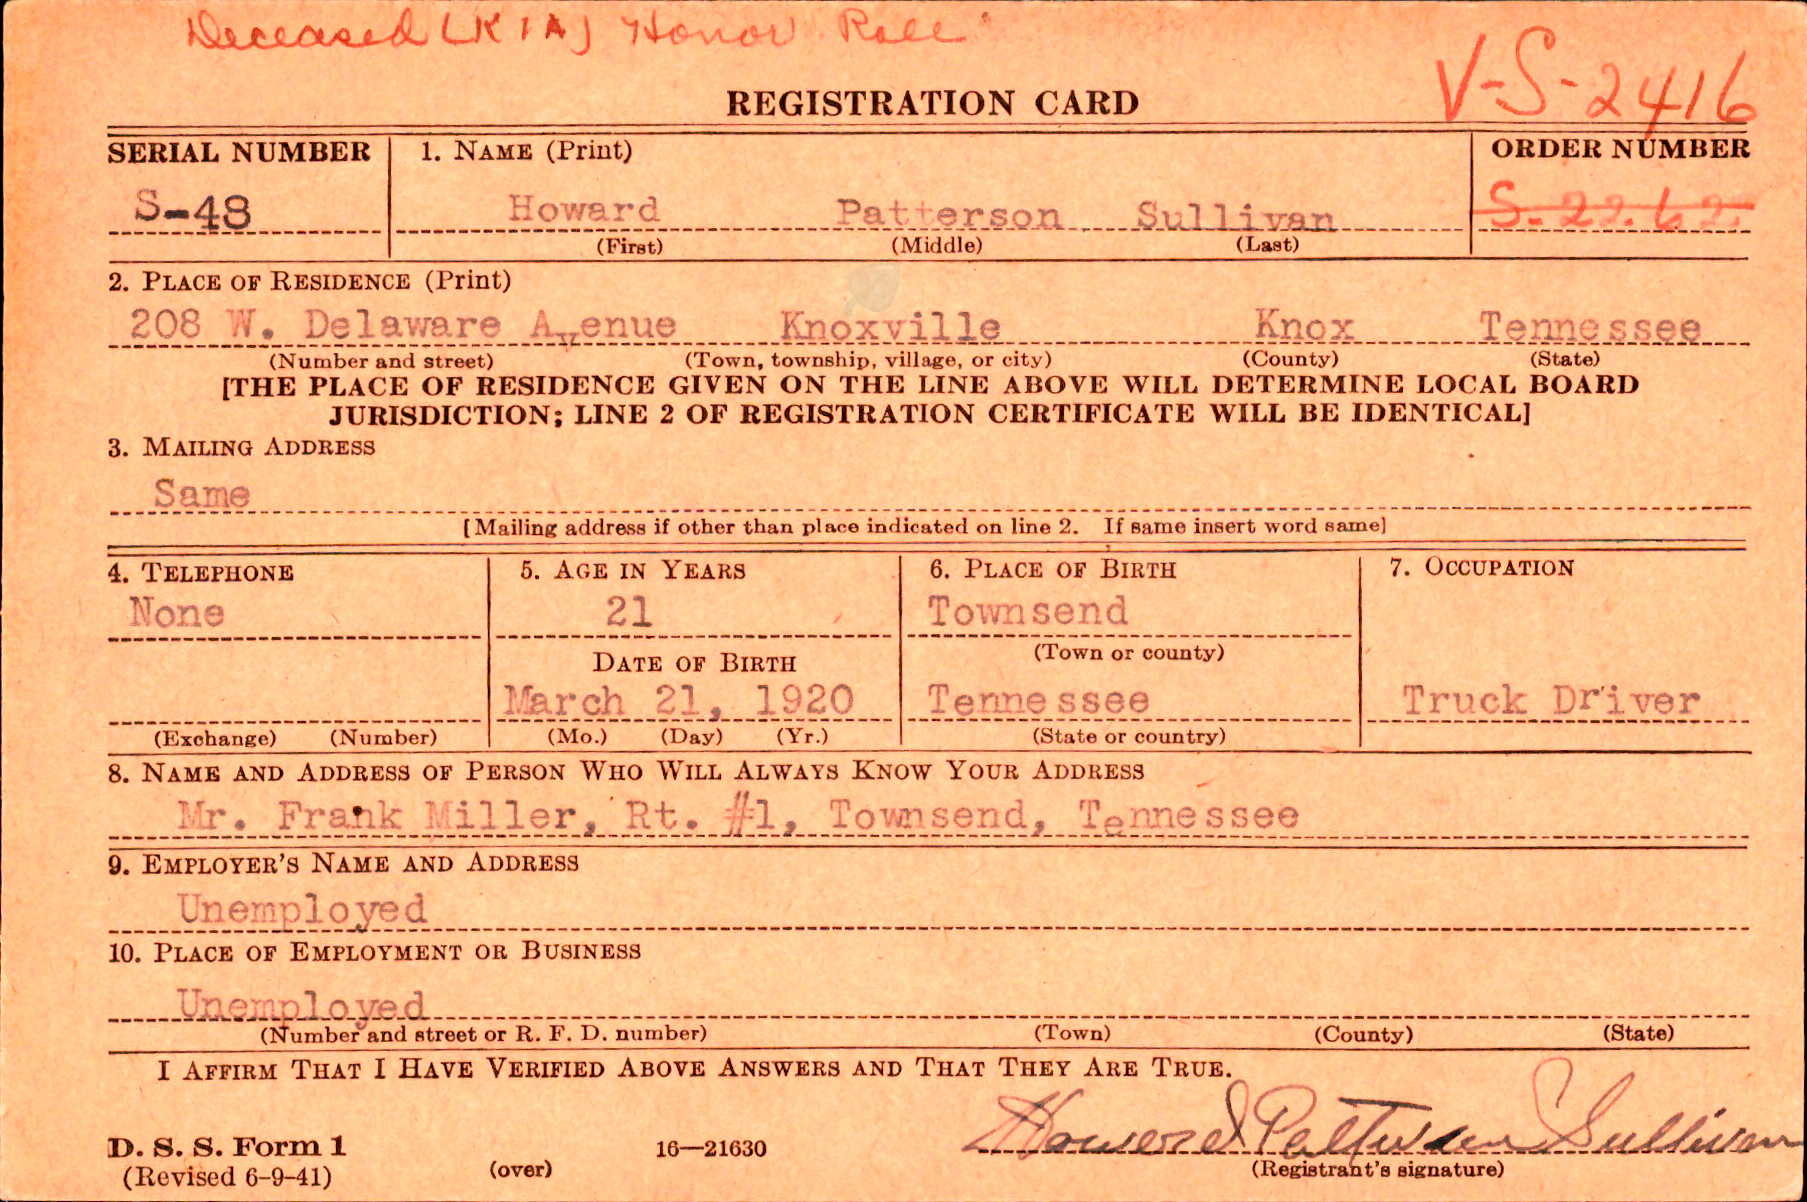 Deceased (KIA) Honor Roll
V-S-2416
REGISTRATION CARD
SERIAL NUMBER 1. NAME (Print) ORDER NUMBER
S-48 Howard Patterson Sullivan S-22.62.
(First) (Middle) (Last)
2. PLACE OF RESIDENCE (Print)
208 W. Delaware Avenue Knoxville Knox Tennessee
(Number and street) (Town, township, village, or city) (County) (State)
[THE PLACE OF RESIDENCE GIVEN ON THE LINE ABOVE WILL DETERMINE LOCAL BOARD
JURISDICTION; LINE 2 OF REGISTRATION CERTIFICATE WILL BE IDENTICAL]
3. MAILING ADDRESS
Same
[Mailing address if other than place indicated on line 2. If same insert word same]
4. TELEPHONE 5. AGE IN YEARS 6. PLACE OF BIRTH 7. OCCUPATION
None 21 Townsend
DATE OF BIRTH (Town or county)
March 21, 1920 Tennessee Truck Driver
(Exchange) (Number) (Mo.) (Day) (Yr.) (State or country)
8. NAME AND ADDRESS OF PERSON WHO WILL ALWAYS KNOW YOUR ADDRESS
Mr. Frank Miller, Rt. #1, Townsend, Tennessee
9. EMPLOYER'S NAME AND ADDRESS
Unemployed
10. PLACE OF EMPLOYMENT OR BUSINESS
Unemployed
(Number and street or R. F. D. number) (Town) (County) (State)
I AFFIRM THAT I HAVE VERIFIED ABOVE ANSWERS AND THAT THEY ARE TRUE.
Howard Patterson Sullivan
D. S. S. Form 1 16—21630
(Revised 6-9-41) (over) (Registrant's signature)